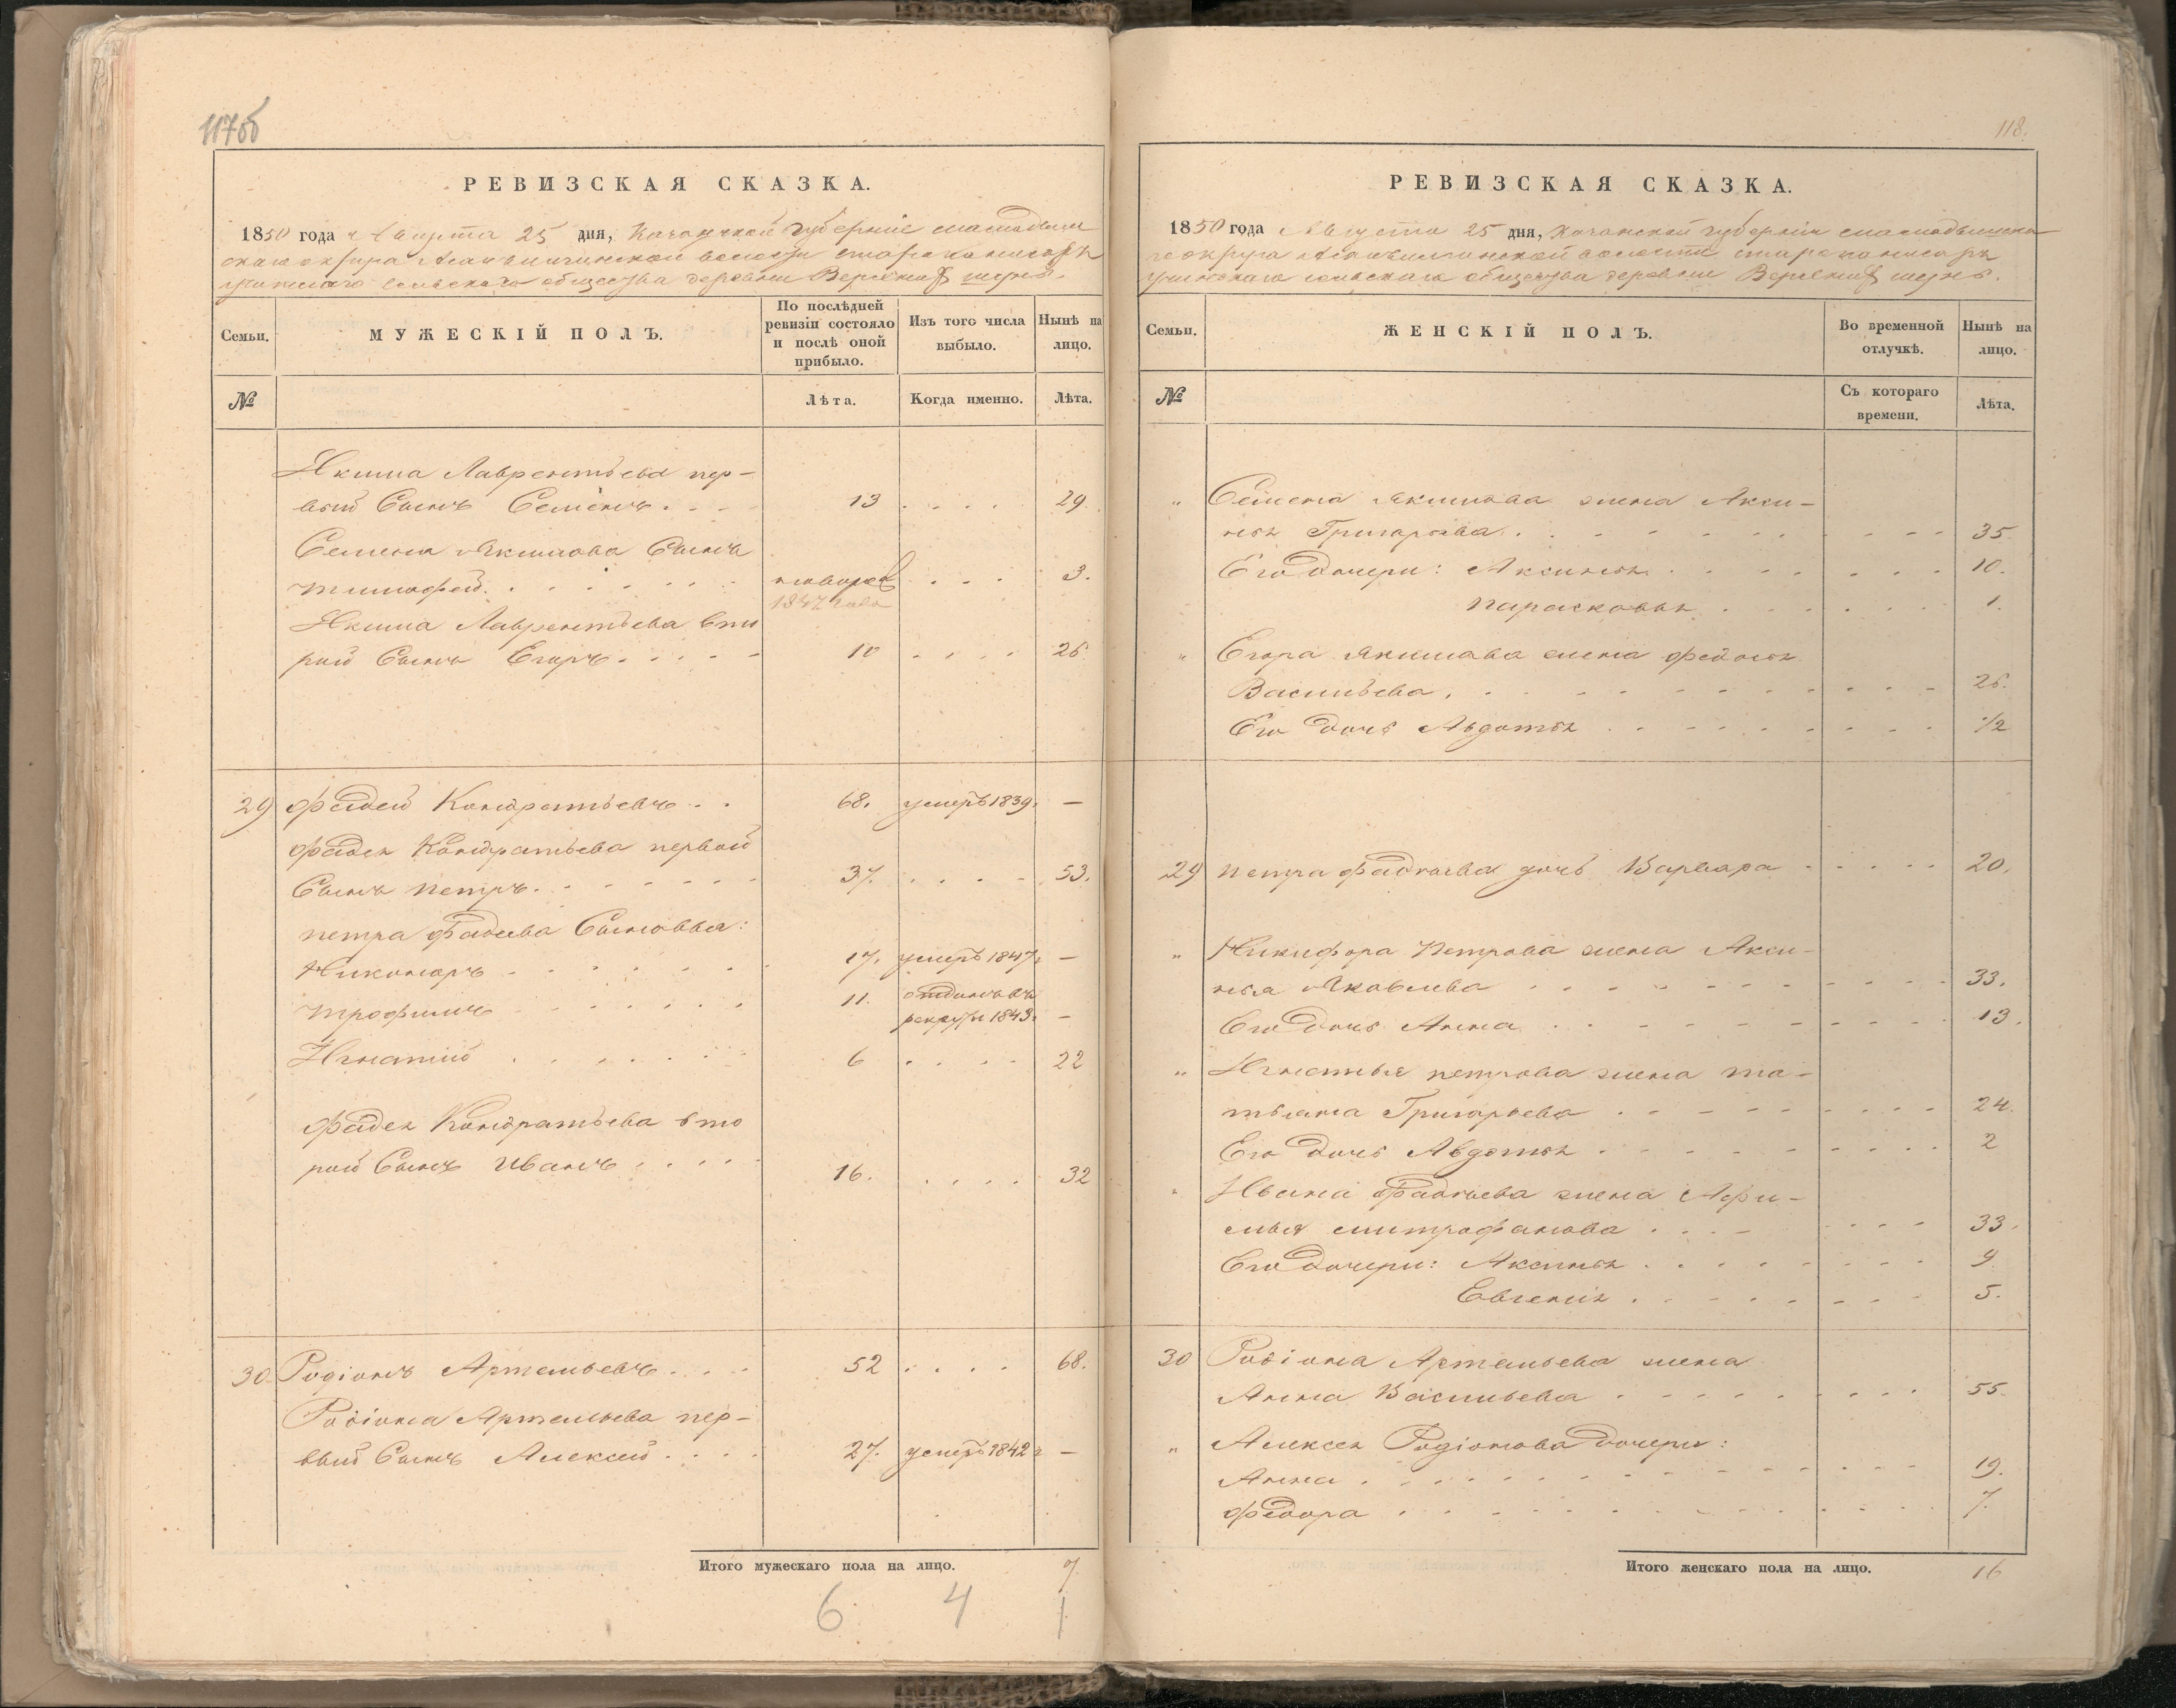 117об
РЕВИЗСКАЯ СКАЗКА.
1850 года Августа 25 дня, Казанской губерніи
округа волости
сельскаго общества деревни
Семьи.
МУЖЕСКІЙ ПОЛЪ.
По послѣдней ревизіи состояло и послѣ оной прибыло.
Изъ того числа выбыло.
Нынѣ на лицо.
№
Лѣта.
Когда именно.
Лѣта.
Якима Лаврентьева пер-
вый Сынъ Семенъ 13 29
Семена Якимова Сынъ
Тимофей 3.
1847 года
Якима Лаврентьева вто
рой Сынъ Егоръ 10 26
29 Фадей Кондратьевъ 68. умеръ 1839. —
Фадея Кондратьева первой
Сынъ Петръ 37. 53.
Петра Фадеева Сыновья:
17. умеръ 1847 —
Трофимъ 11. отданъ въ
рекруты 1843 —
Игнатій 6 22
Фадея Кондратьева вто
рой Сынъ Иванъ 16. 32
30 Родіонъ Артемьевъ 52 68.
Родіона Артемьева пер-
вый Сынъ Алексей 27. умеръ 1842 —
Итого мужескаго пола на лицо. 7
6 4 1
118.
РЕВИЗСКАЯ СКАЗКА.
1850 года Августа 25 дня, Казанской губерніи
округа волости
сельскаго общества деревни
Семьи.
ЖЕНСКІЙ ПОЛЪ.
Во временной отлучкѣ.
Нынѣ на лицо.
№
Съ котораго времени.
Лѣта.
„ Семена Якимова жена Акси-
нья Григорьева 35
Его Дочери: Аксинья 10.
Парасковья 1.
„ Егора Якимова жена Федосья
Васильева 26.
Его Дочь Авдотья 1/2
29 Петра Фадеева дочь Варвара 20.
„ Никифора Петрова жена Акси-
нья Яковлева 33.
Его Дочь Анна 13.
„ Игнатья Петрова жена та-
тьяна Григорьева 24.
Его Дочь Авдотья 2
„ Ивана Фадеева жена Афи-
мья митрофанова 33.
Его Дочери: Аксинья 9
Евгенія 5.
30 Родіона Артемьева жена
Анна Васильева 55.
„ Алексея Родіонова Дочери:
Анна 19.
Федора 7.
Итого женскаго пола на лицо. 16